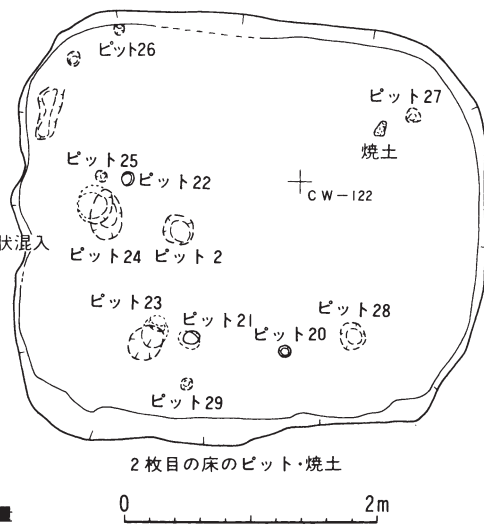 ピット26
ピット27
焼土
ピット25
ピット22
CW-122
状混入
ピット24 ピット2
ピット23
ピット21
ピット20
ピット28
ピット29
2枚目の床のピット・焼土
0 2m